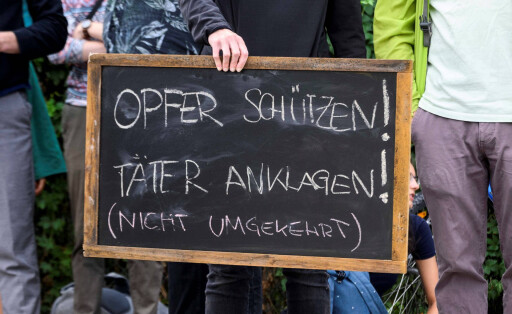 OPFER SCHÜTZEN!
TÄTER ANKLAGEN!
(NICHT UMGEKEHRT)